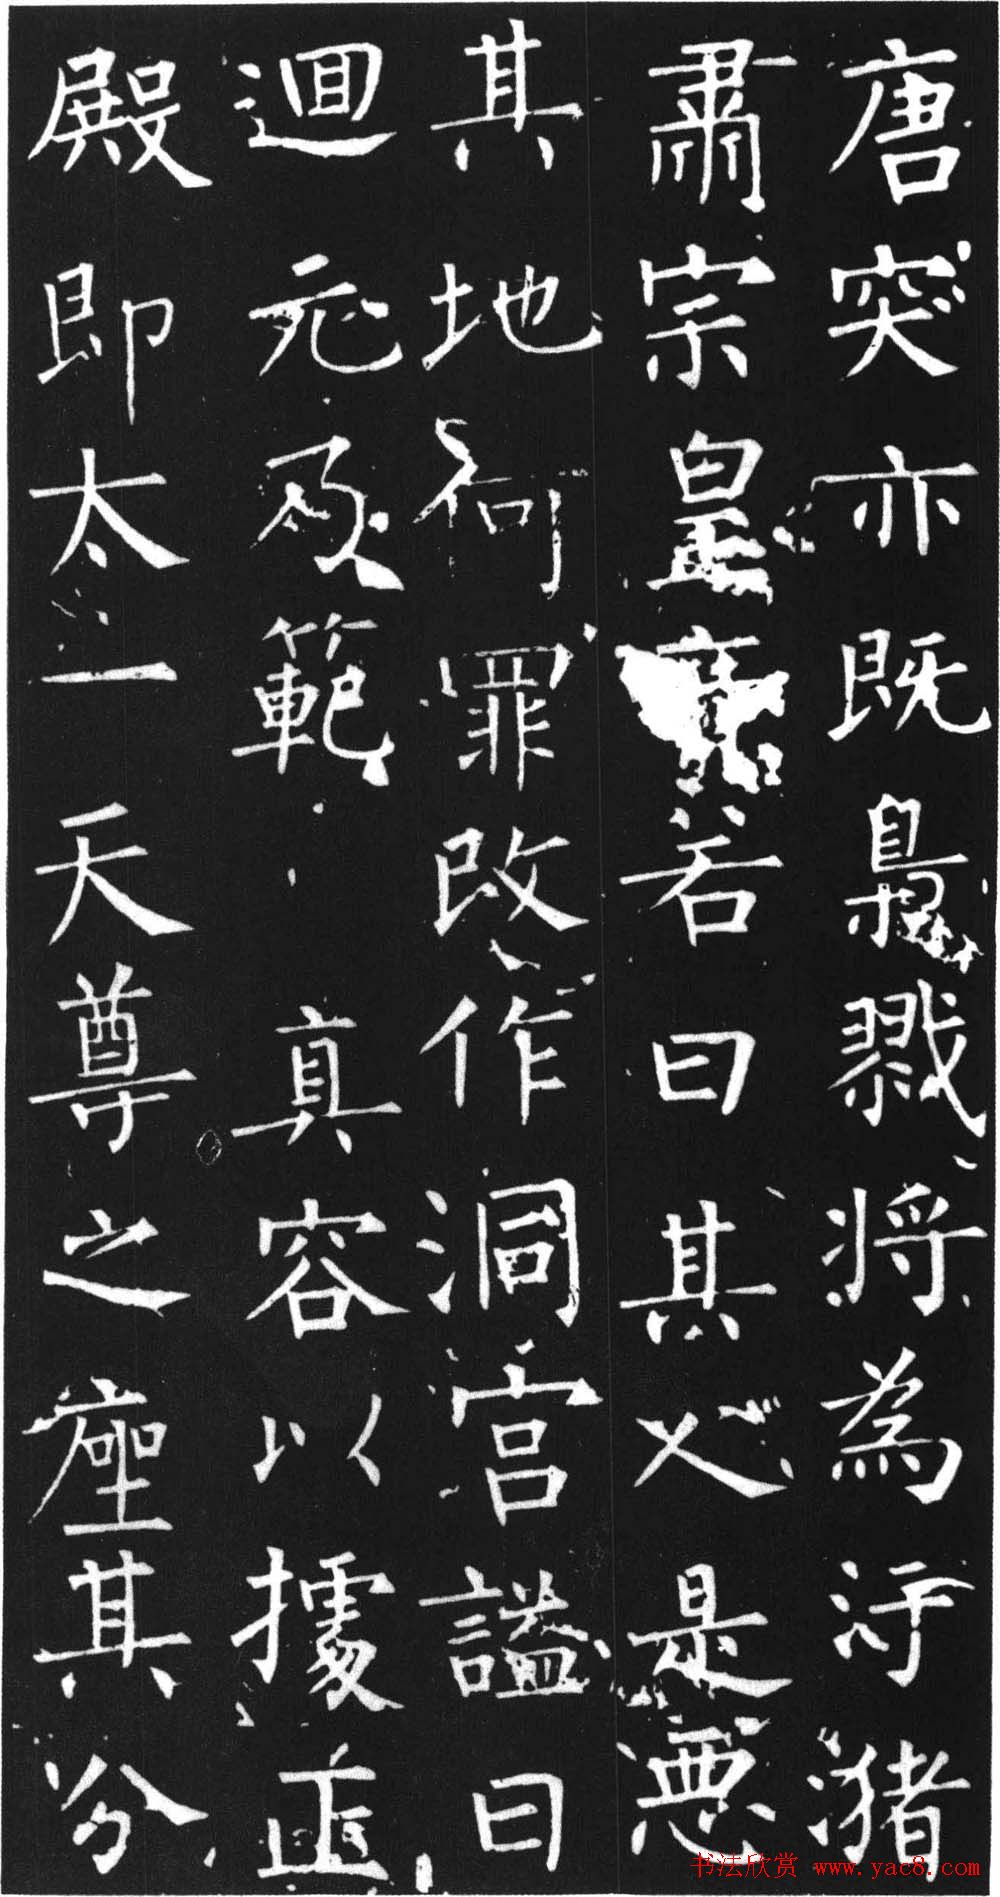 唐突亦既梟戮将為汙瀦
肅宗皇帝若曰其人是悪
其地何罪改作洞宫謚曰
迴元乃範真容以據正
殿即太一天尊之座其分
书法欣赏 www.yac8.com